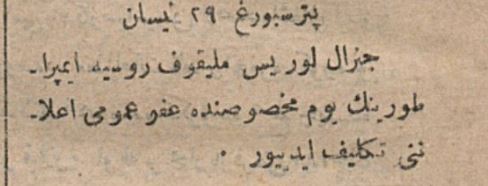 پترسبورغ ٢٩ نیسان
جنرال لوریس ملیقوف روسیه ایمپرا-
طورینك یوم مخصوصنده عفو عمومی اعلا-
ننی تکلیف ایدییور ٠